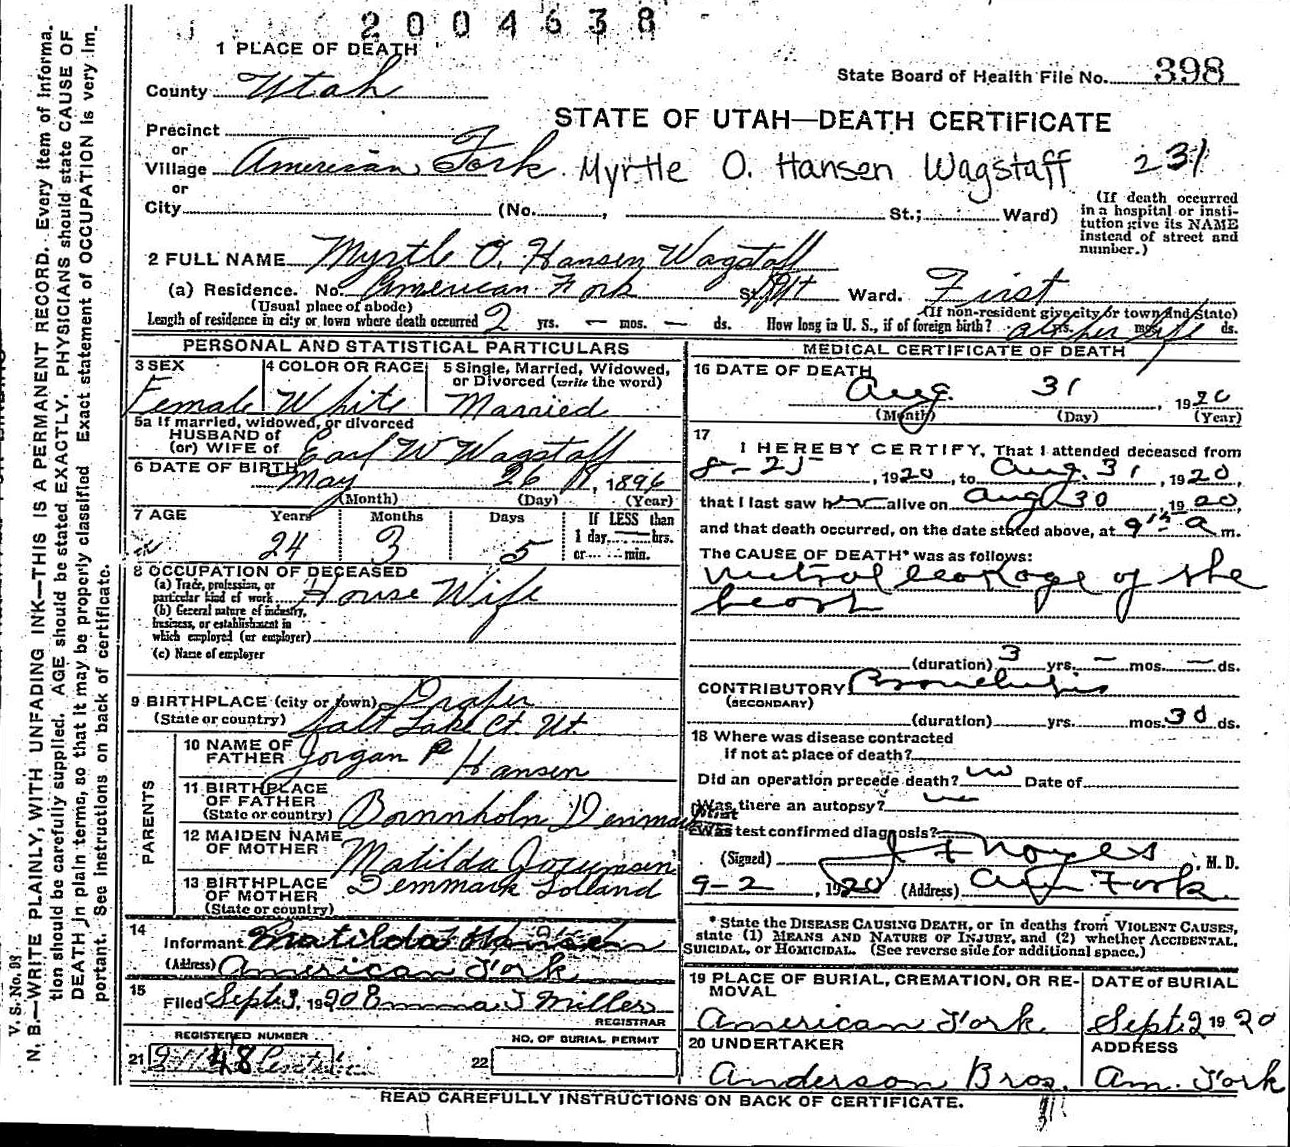 2004638
1 PLACE OF DEATH
State Board of Health File No. 398
County Utah
STATE OF UTAH—DEATH CERTIFICATE
Precinct
or
Village American Fork Myrtle O. Hansen Wagstaff 231
or
City (No. , St.; Ward)
(If death occurred in a hospital or insti-
tution give its NAME
instead of street and
number.)
2 FULL NAME Myrtle O. Hansen Wagstaff
(a) Residence. No. American Fork St. Ward. First
(Usual place of abode) (If non-resident give city or town and State)
Length of residence in city or town where death occurred 2 yrs. — mos. — ds. How long in U. S., if of foreign birth? yrs. mos. ds.
PERSONAL AND STATISTICAL PARTICULARS
3 SEX Female
4 COLOR OR RACE White
5 Single, Married, Widowed,
or Divorced (write the word)
Married
5a If married, widowed, or divorced
HUSBAND of
(or) WIFE of Earl W Wagstaff
6 DATE OF BIRTH May 26, 1896
(Month) (Day) (Year)
7 AGE Years 24 Months 3 Days 5
If LESS than
1 day, hrs.
or min.
8 OCCUPATION OF DECEASED
(a) Trade, profession, or
particular kind of work House Wife
(b) General nature of industry,
business, or establishment in
which employed (or employer)
(c) Name of employer
9 BIRTHPLACE (city or town) Draper
(State or country) Salt Lake Ct. Ut.
PARENTS
10 NAME OF
FATHER Jorgan P Hansen
11 BIRTHPLACE
OF FATHER
(State or country) Bornnholn Denmark
12 MAIDEN NAME
OF MOTHER Matilda
13 BIRTHPLACE
OF MOTHER
(State or country) Demmark Lolland
14
Informant Matilda Hansen
(Address) American Fork
15
Filed Sept 3, 1920 Emma J Miller
REGISTRAR
REGISTERED NUMBER
21 48
NO. OF BURIAL PERMIT
22
MEDICAL CERTIFICATE OF DEATH
16 DATE OF DEATH
Aug. 31, 1920
(Month) (Day) (Year)
17
I HEREBY CERTIFY, That I attended deceased from
8-25, 1920, to Aug. 31, 1920,
that I last saw her alive on Aug 30 1920,
and that death occurred, on the date stated above, at 9 a m.
The CAUSE OF DEATH* was as follows:
Mitral leakage of the
heart
(duration) 3 yrs. — mos. — ds.
CONTRIBUTORY Bronchitis
(SECONDARY)
(duration) yrs. mos. 30 ds.
18 Where was disease contracted
if not at place of death?
Did an operation precede death? no Date of
Was there an autopsy? no
What test confirmed diagnosis?
(Signed) J F Noyes, M. D.
9-2, 1920 (Address) Am Fork.
* State the DISEASE CAUSING DEATH, or in deaths from VIOLENT CAUSES,
state (1) MEANS AND NATURE OF INJURY, and (2) whether ACCIDENTAL,
SUICIDAL, or HOMICIDAL. (See reverse side for additional space.)
19 PLACE OF BURIAL, CREMATION, OR RE-
MOVAL
American Fork
DATE of BURIAL
Sept 2 1920
20 UNDERTAKER
Anderson Bros.
ADDRESS
Am. Fork
READ CAREFULLY INSTRUCTIONS ON BACK OF CERTIFICATE.
V. S. No. 98
N. B.—WRITE PLAINLY, WITH UNFADING INK—THIS IS A PERMANENT RECORD. Every item of informa-
tion should be carefully supplied. AGE should be stated EXACTLY. PHYSICIANS should state CAUSE OF
DEATH in plain terms, so that it may be properly classified. Exact statement of OCCUPATION is very im-
portant. See instructions on back of certificate.